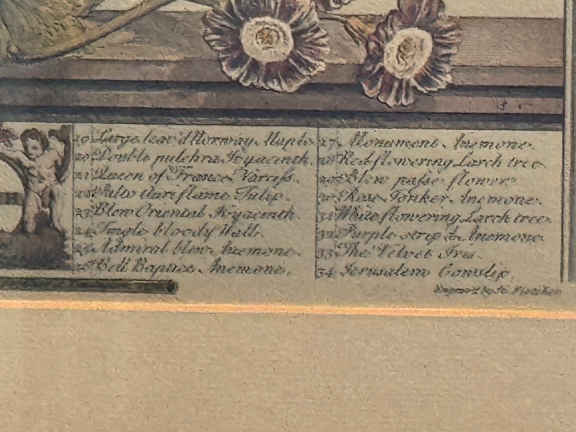 19 Large leav'd Norway Maple
20 Double pulchra Hyacinth.
21 Queen of France Narciss.
22 Palto Auriflame Tulip.
23 Blew Oriental Hyacinth.
24 Single bloody Wall.
25 Admiral blew Anemone.
26 Bell Baptice Anemone.
27 Monument Anemone.
28 Red flowering Larch tree
29 Blew passe flower
30 Rose Jonker Anemone.
31 White flowering Larch tree
32 Purple strip'd Anemone
33 The Velvet Iris.
34 Jerusalem Cowslip.
Engrav'd by H. Fletcher